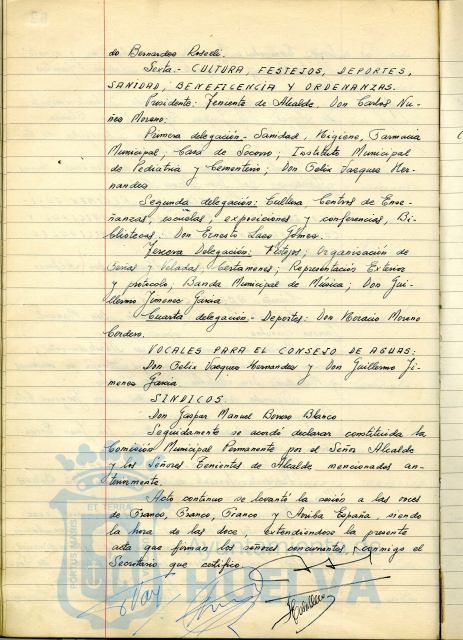 do Bernardeo Roselli.
Sexta.- CULTURA, FESTEJOS, DEPORTES,
SANIDAD, BENEFICENCIA Y ORDENANZAS.
Presidente: Teniente de Alcalde, Don Carlos Nu-
ñez Moreno;
Primera delegación.- Sanidad, Higiene, Farmacia
Municipal; Casa de Socorro; Instituto Municipal
de Pediatria y Cementerio; Don Felix Vazquez Her-
nandez
Segunda delegación: Cultura Centros de Ense-
ñanzas, escuelas, exposiciones y conferencias, Bi-
bliotecas: Don Ernesto Lazo Gomez.
Tercera Delegación: Festejos; Organización de
Ferias y Veladas, Certamenes; Representación Exterior
y protocolo; Banda Municipal de Música; Don Gui-
llermo Jimenez Garcia
Cuarta delegación.- Deportes: Don Horacio Moreno
Cordero.
VOCALES PARA EL CONSEJO DE AGUAS:
Don Felix Vazquez Hernandez y Don Guillermo Ji-
menez Garcia
SINDICOS.
Don Gaspar Manuel Borrero Blanco
Seguidamente se acordó declarar constituida la
Comisión Municipal Permanente por el Señor Alcalde
y los Señores Tenientes de Alcalde mencionados an-
teriormente.
Acto continuo se levantó la sesión a las voces
de Franco, Franco, Franco y Arriba España, siendo
la hora de las doce, extendiendose la presente
acta que firman los señores concurrentes, conmigo el
Secretario que certifico.
HUELVA